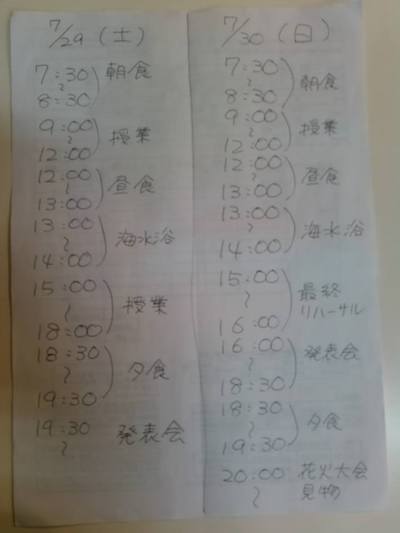 7/29(土)
7:30
~
8:30
朝食
9:00
~
12:00
授業
12:00
~
13:00
昼食
13:00
~
14:00
海水浴
15:00
~
18:00
授業
18:30
~
19:30
夕食
19:30
~
発表会
7/30(日)
7:30
~
8:30
朝食
9:00
~
12:00
授業
12:00
~
13:00
昼食
13:00
~
14:00
海水浴
15:00
~
16:00
最終
リハーサル
16:00
~
18:30
発表会
18:30
~
19:30
夕食
20:00
~
花火大会
見物